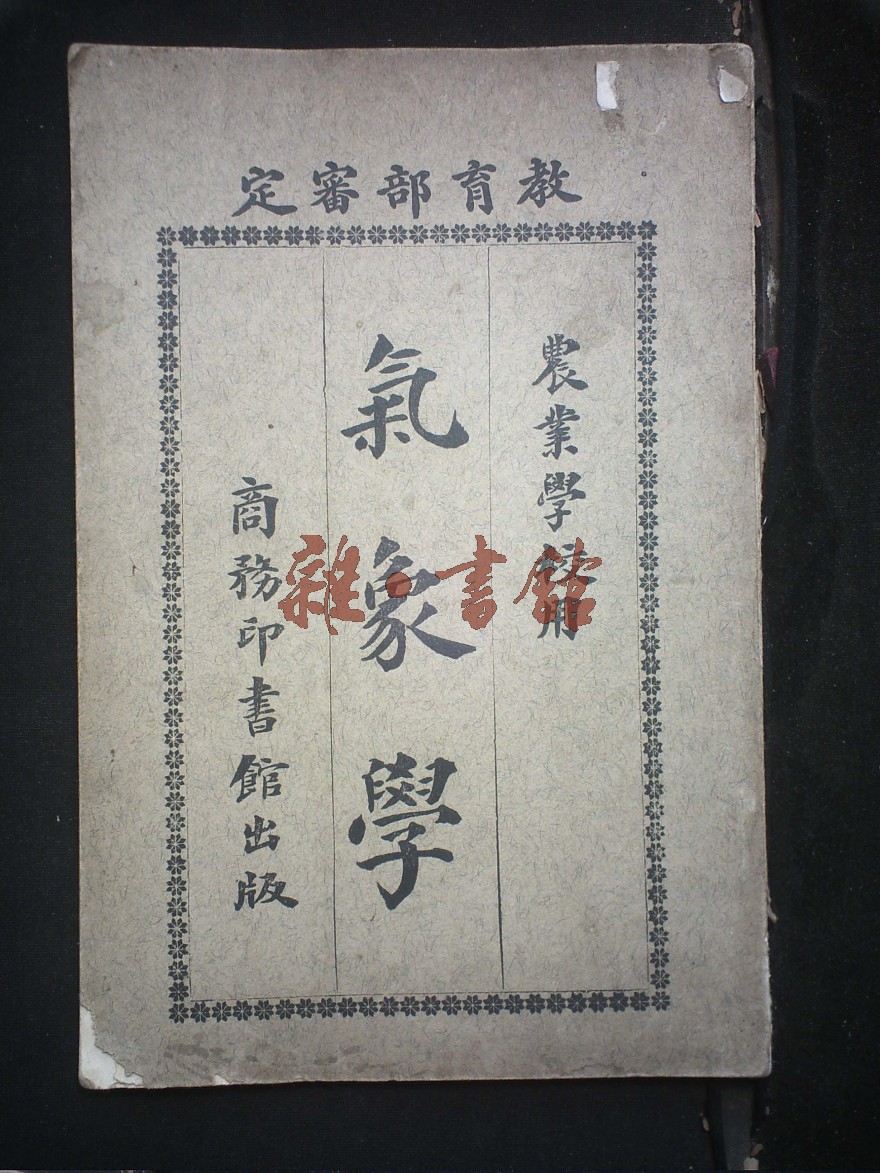 教育部審定
農業學校用
氣象學
商務印書館出版
雜·書館